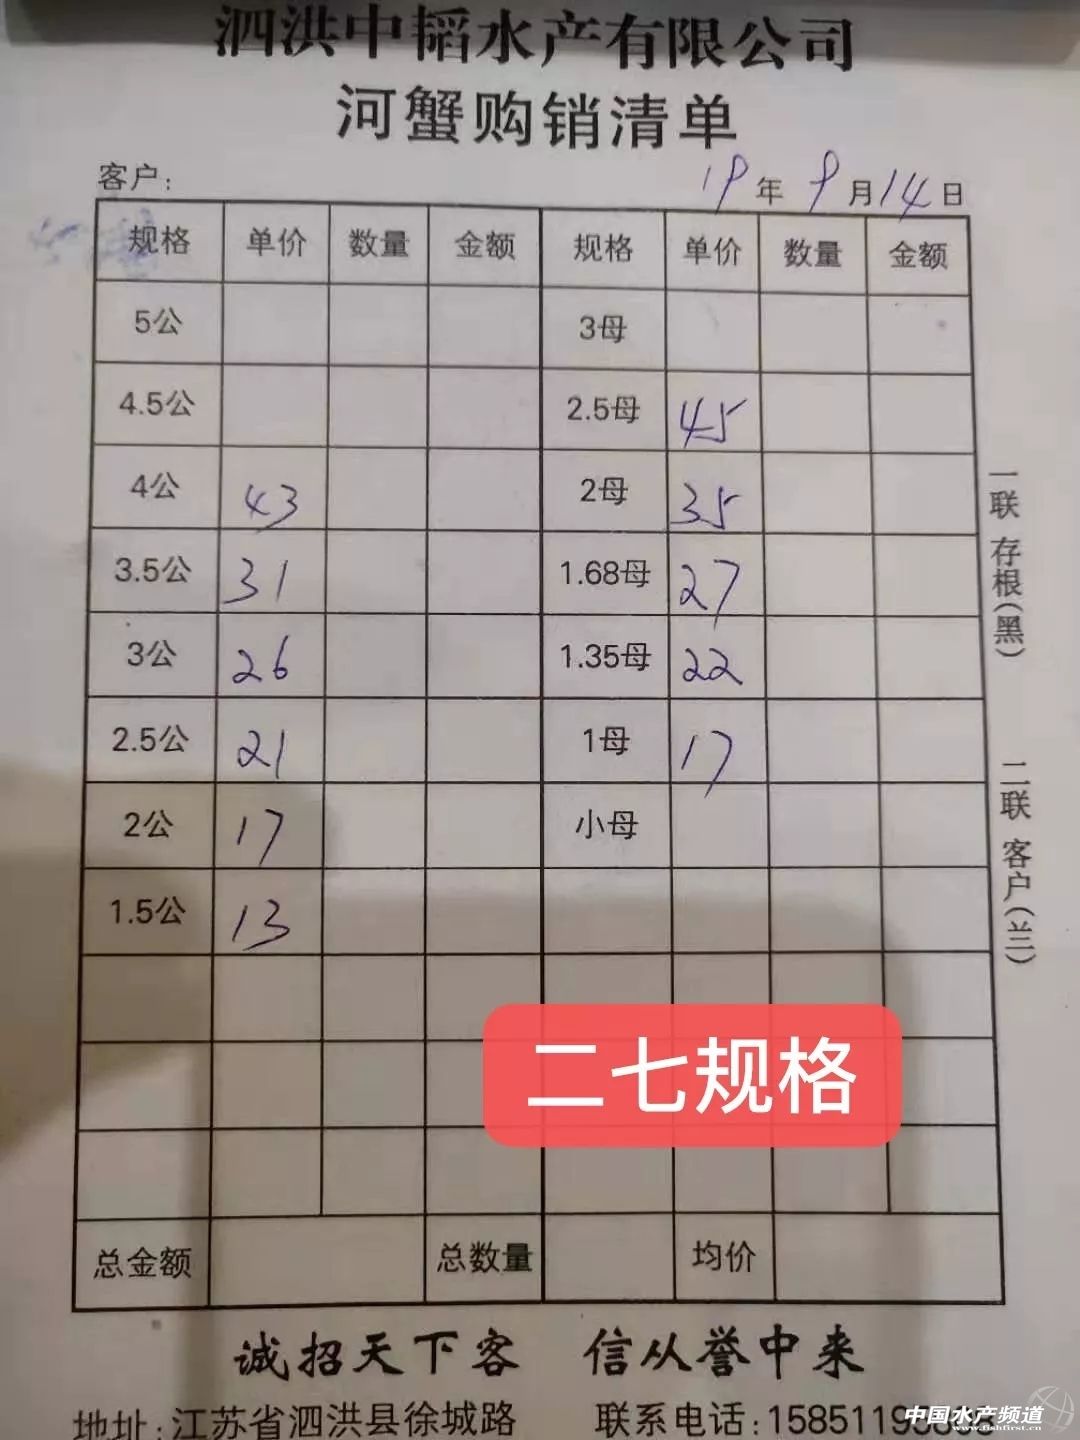 泗洪中韬水产有限公司
河蟹购销清单
客户: 19年9月14日
规格 单价 数量 金额 规格 单价 数量 金额
5公 3母
4.5公 2.5母 45
4公 43 2母 35
3.5公 31 1.68母 27
3公 26 1.35母 22
2.5公 21 1母 17
2公 17 小母
1.5公 13
二七规格
总金额 总数量 均价
一联 存根(黑) 二联 客户(兰)
诚招天下客 信从誉中来
地址:江苏省泗洪县徐城路 联系电话:158511
中国水产频道
www.fishfirst.cn